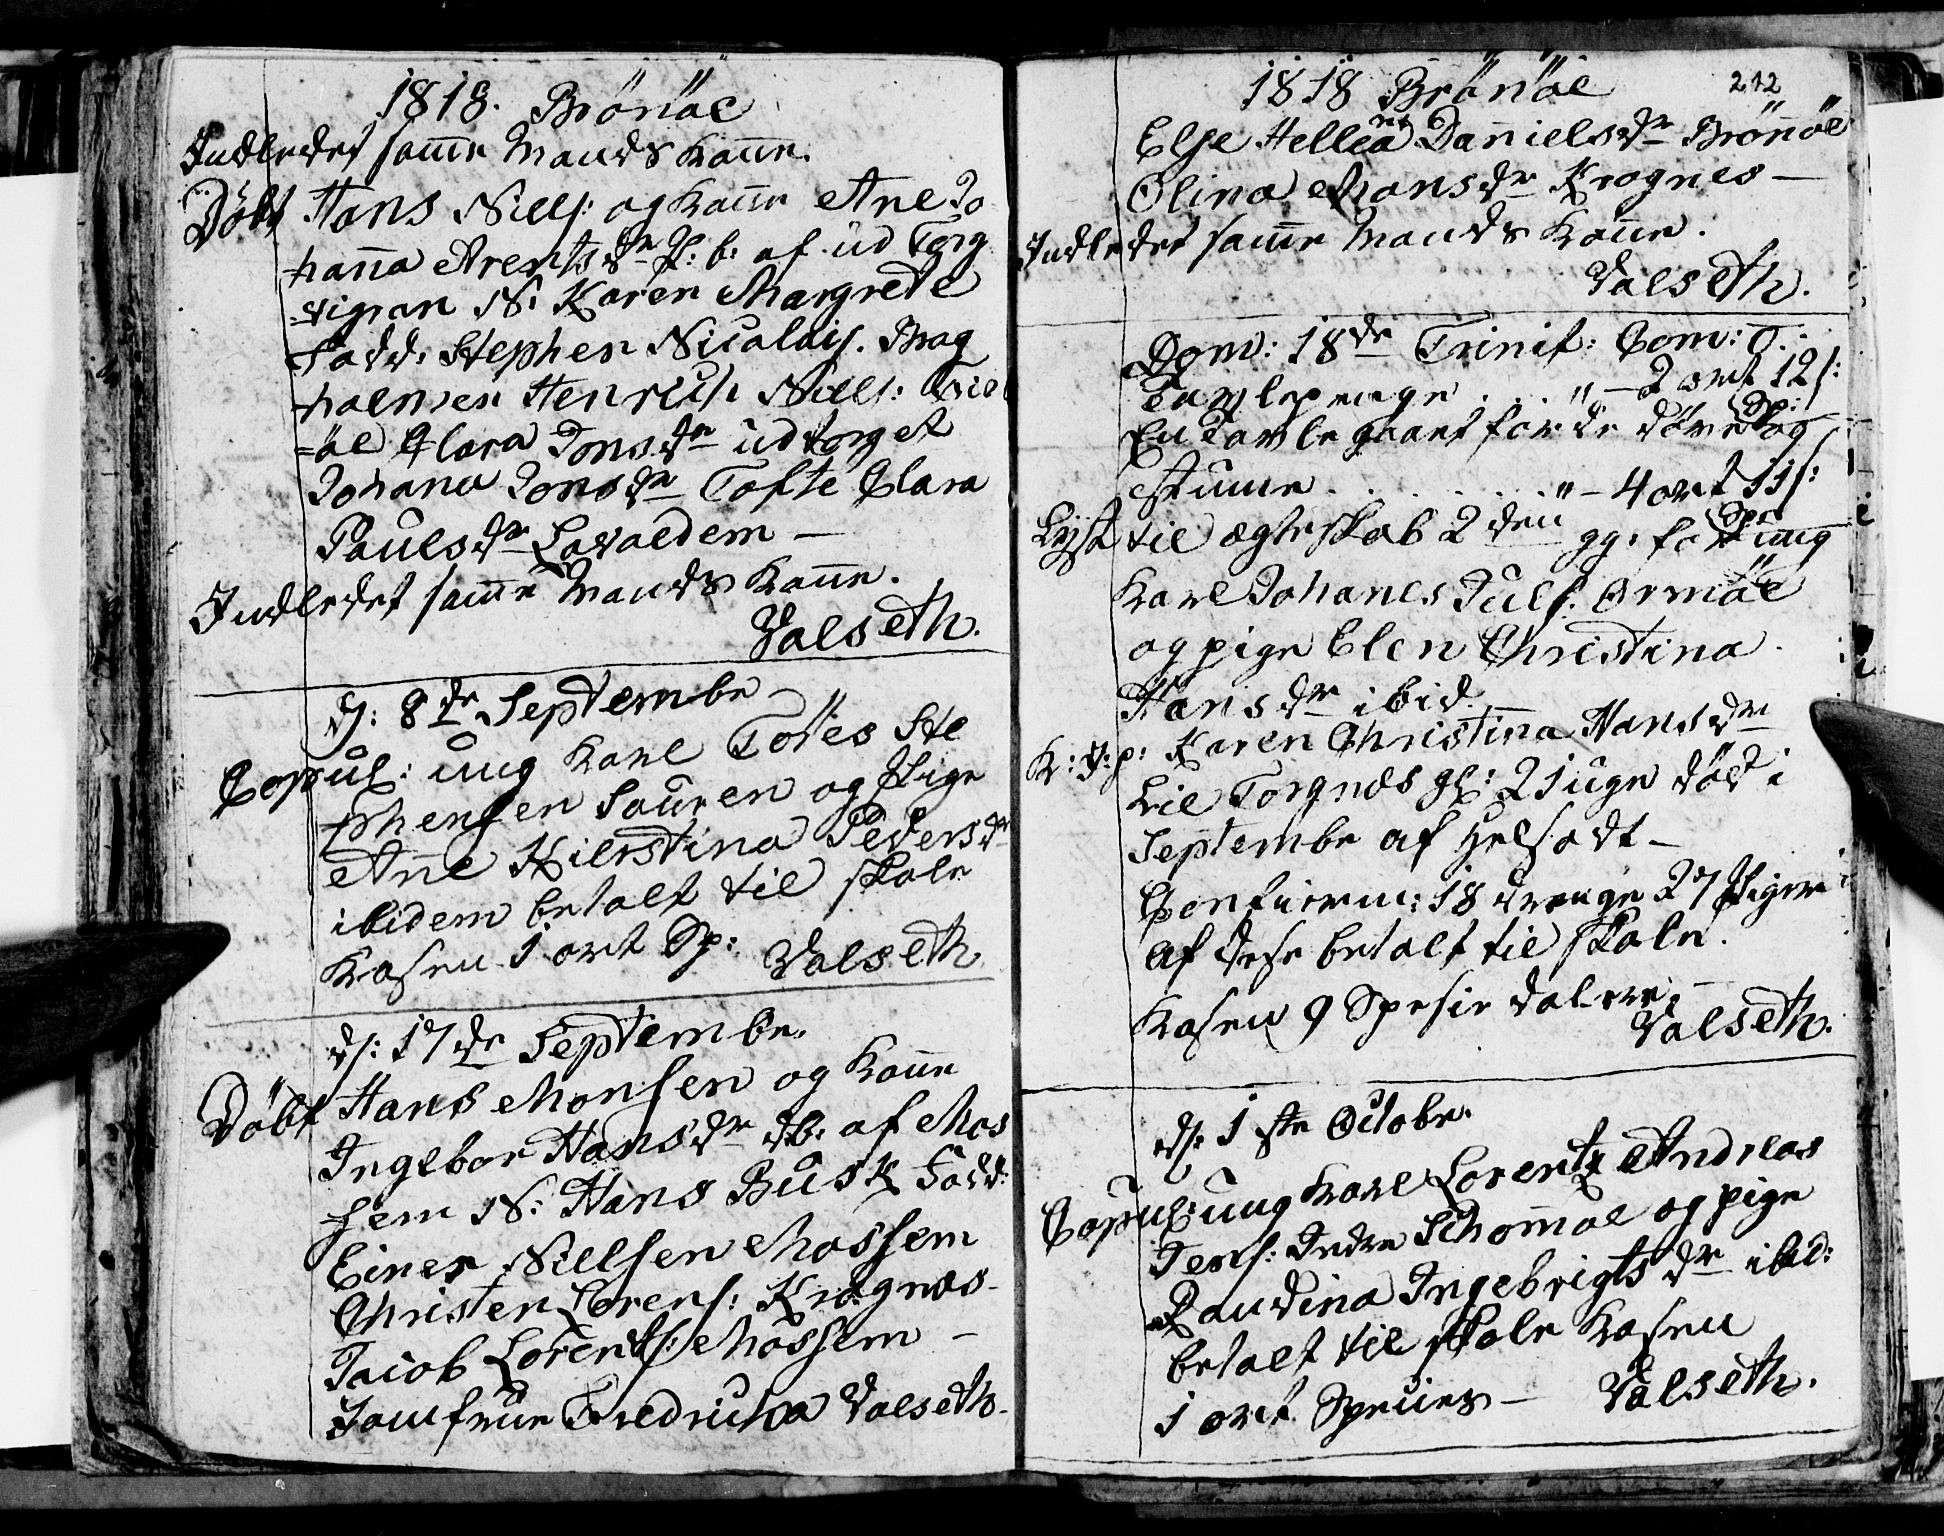 1818. Brönöe
Indledet same Mands Kone.
Döbt Hans Niels: og Kone Ane Jo
hanna Arentsdr Pb: b: af ud Torg
vigran N: Karen Margrete
Fadd: Stephen Nicolais. Brag
holmen Henrich Niels:
öe Clara Jonsdr udtorget
Johana Jonsdr Tofte Clara
Paulsdr Lavoldem –
Indledet same Mands Kone.
Valseth.
d: 8de Septembr
Copul: ung Karl Töres Ste
phensen Sauren og Pige
Ane Kierstina Pedersdr
ibidem betalt til skole
Kasen 1 ort Sp: Valseth
d: 17de Septembr.
Döbt Hans Monsen og Kone
Ingebor Hansdr db: af Mos
sem N: Hans Busk Fadd:
Einer Nielsen Mossem
Christen Lorens: Kragnæs –
Jacob Lorents: Mossem –
Jomfrue Fredricha Valseth.
1818 Brönöe 212
Else Hellena Danielsdr Brönöe
Olina Monsdr Kragnes –
Indledet same Mands Kone.
Valseth.
Dom: 18de Trinit: Com: 0.
Tavlepenge . . . " – 2 ort 12 s:
En Tavle gaaet for de döve og Sp:
stume . . . . . . " – 4 ort 11 s:
Lyst til ægteskab 2den gg: for ung Sp:
Karl Johanes Juls: Ormöe
og pige Elen Christina
Hansdr ibid.
K: J: p: Karen Christina Hansdr
Lil Torgnæs gl: 2 1 uge död i
Septembr af Helsodt –
Confirm: 18 drenge 27 Piger
af dese betalt til skole
Kasen 9 Spesie daler
Valseth.
d: 1ste Octobr.
Copul: ung Karl Lorentz Andreas
Jens: Indre Schomoe og pige
Daudina Ingebrigtsdr ibid:
betalt til skole Kasen
1 ort Species – Valseth.